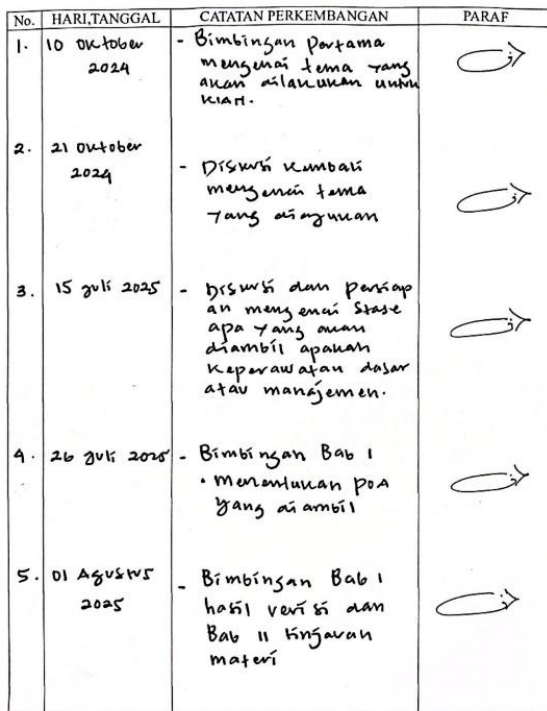 No. HARI,TANGGAL CATATAN PERKEMBANGAN PARAF
1. 10 Oktober 2024
- Bimbingan pertama
mengenai tema yang
akan dilakukan untuk
KIAN.
2. 21 Oktober 2024
- Diskusi kembali
mengenai tema
yang diajukan
3. 15 Juli 2025
- Diskusi dan persiap
an mengenai Stase
apa yang akan
diambil apakah
Keperawatan dasar
atau manajemen.
4. 26 Juli 2025
- Bimbingan Bab 1
• Menentukan POA
yang di ambil
5. 01 Agustus 2025
- Bimbingan Bab 1
hasil revisi dan
Bab II tinjauan
materi